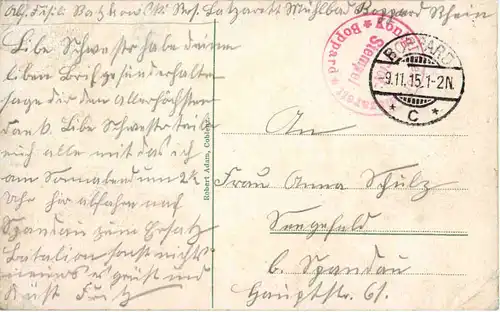 Abs. Füsil. Batzkowski Res. Lazarett Mühlbad Boppard Rhein
Libe Schwester habe deinen
liben Brief gesund erhalten
sage dir den Allerhöchsten
Dank. Libe Schwester teile
euch alle mit das ich
am Sonnabend um 2½
Uhr hir abfahre nach
Spandau zum Ersatz
Batalion sonst nichts
neues es grüst und
Küst Fritz
Robert Adam, Coblenz
Stempel
Boppard
BOPPARD
9.11.15.1-2N.
* C *
An
Frau Anna Schulz
Seegefeld
b. Spandau
Hauptstr. 61.